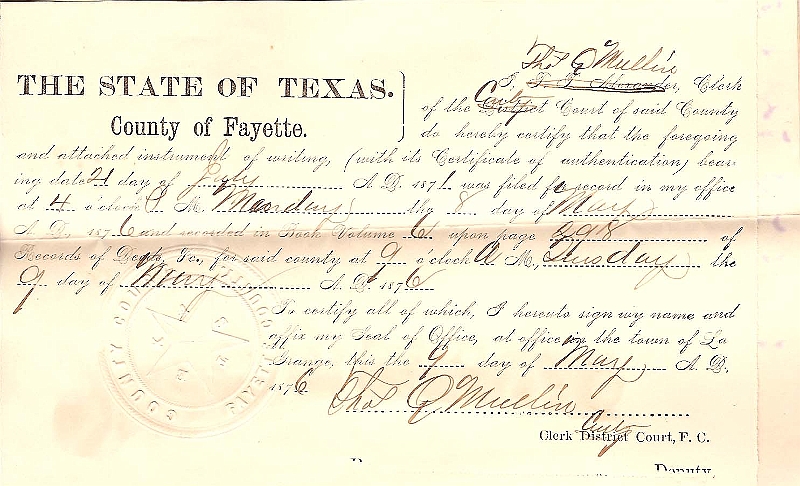 Thos Q Mullin
THE STATE OF TEXAS.
County of Fayette.
I, F. T. Alexander, Clerk
of the County District Court of said County
do hereby certify that the foregoing
and attached instrument of writing, (with its Certificate of authentication) bear-
ing date 21 day of July A. D. 1871, was filed for record in my office
at 4 o'clock P M. Monday the 8 day of May
A. D. 1876 and recorded in Book Volume 6 upon page 298 of
Records of Deeds, &c., for said county at 9 o'clock A M., Tuesday the
9 day of May A. D. 1876
To certify all of which, I hereto sign my name and
affix my Seal of Office, at office in the town of La
Grange, this the 9 day of May A. D.
1876 Thos Q Mullin
Cnty
Clerk District Court, F. C.
Deputy.